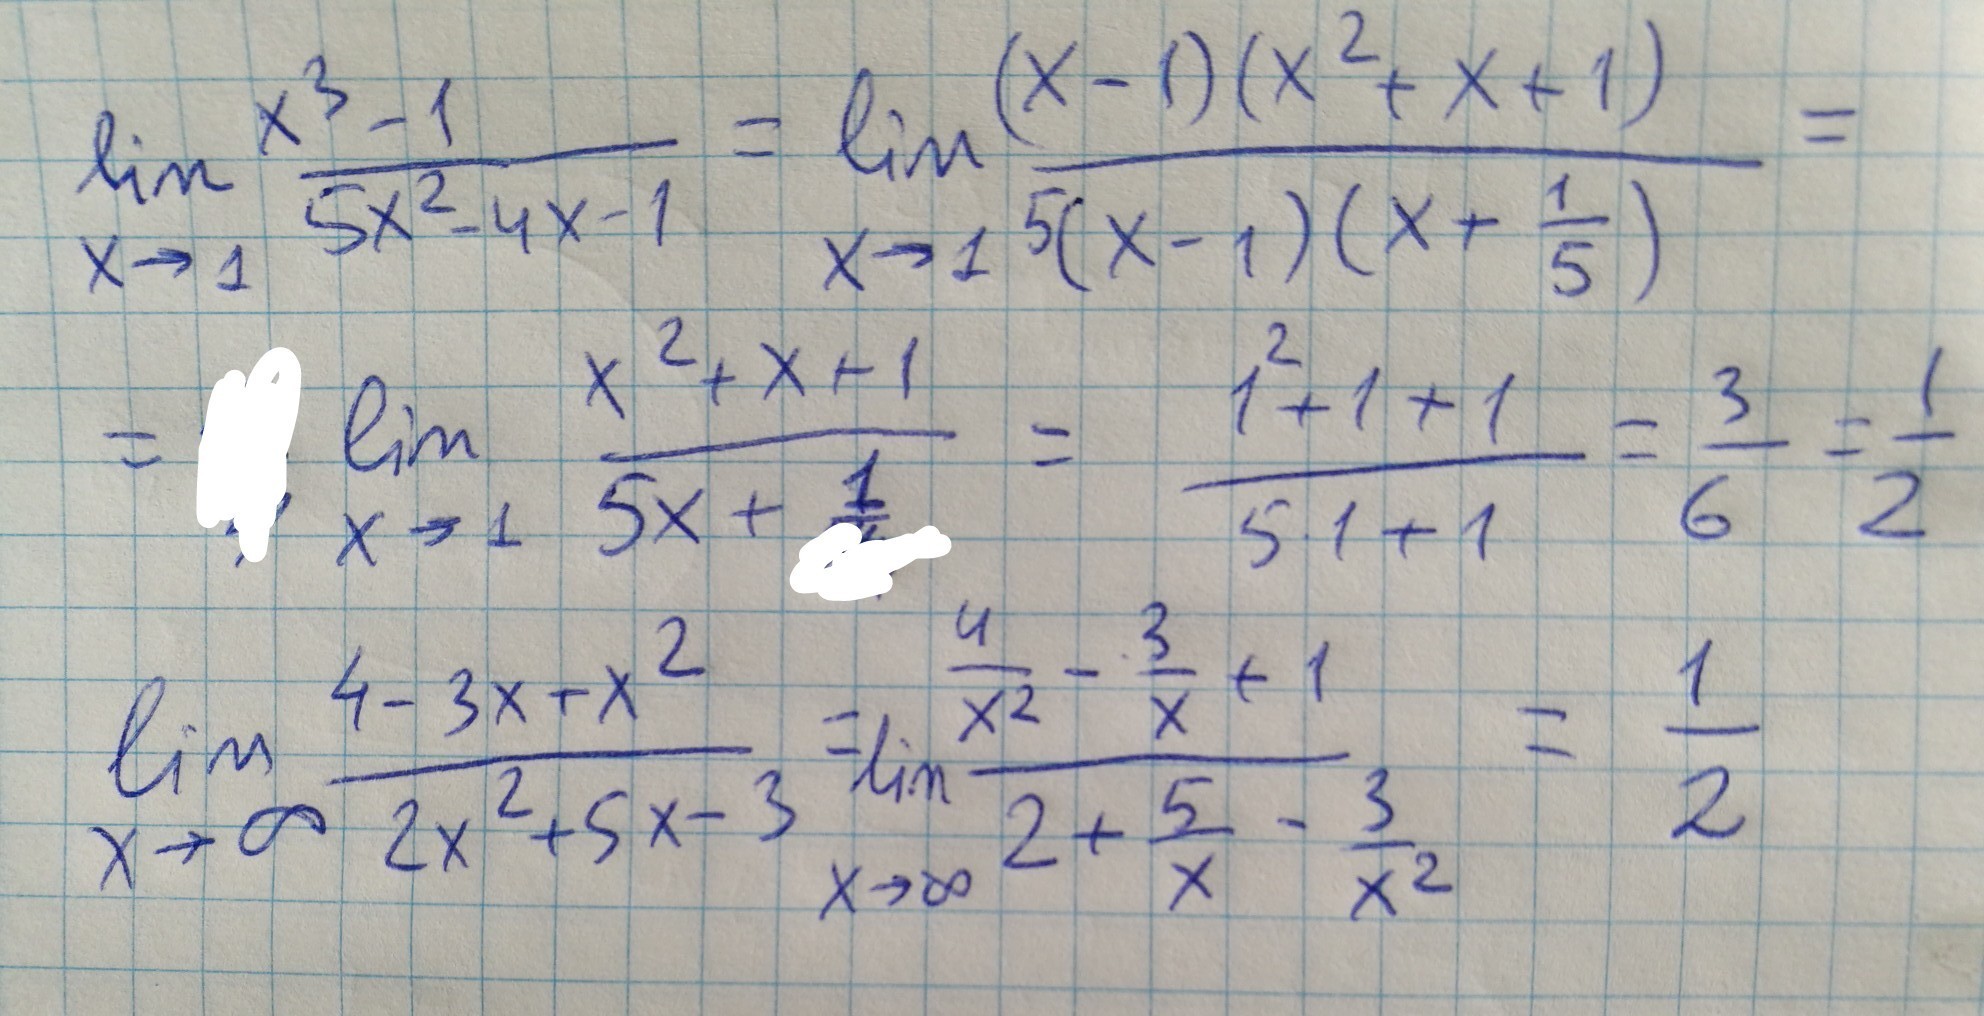 lim x→1 (x³-1)/(5x²-4x-1) = lim x→1 ((x-1)(x²+x+1))/(5(x-1)(x+1/5)) =
= lim x→1 (x²+x+1)/(5x+1) = (1²+1+1)/(5·1+1) = 3/6 = 1/2
lim x→∞ (4-3x+x²)/(2x²+5x-3) = lim x→∞ (4/x² - 3/x + 1)/(2 + 5/x - 3/x²) = 1/2